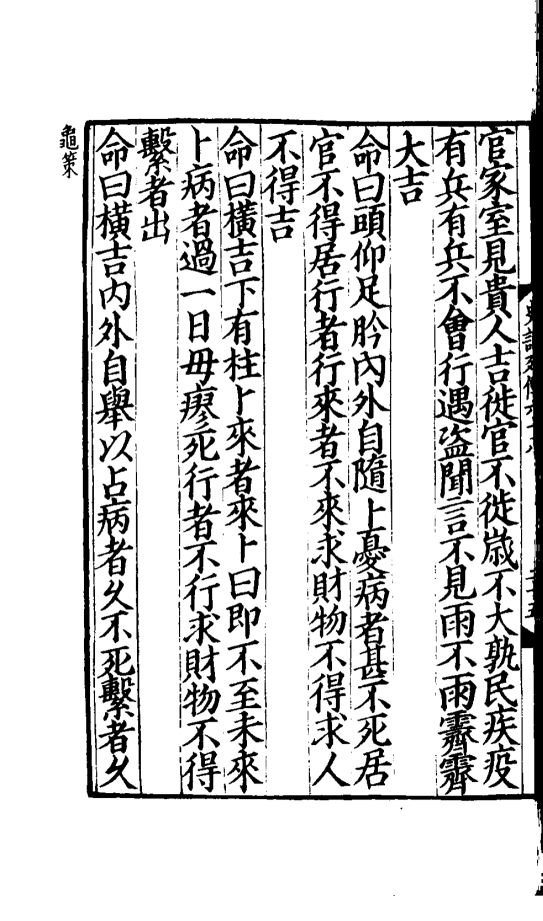 官家室見貴人吉徙官不徙歲不大孰民疾疫
有兵有兵不會行遇盗聞言不見雨不雨霽霽
大吉
命曰頭仰足肣內外自隨卜憂病者甚不死居
官不得居行者行來者不來求財物不得求人
不得吉
命曰橫吉下有柱卜來者來卜曰即不至未來
卜病者過一日毋瘳死行者不行求財物不得
繫者出
命曰橫吉內外自舉以占病者久不死繫者久
龜策